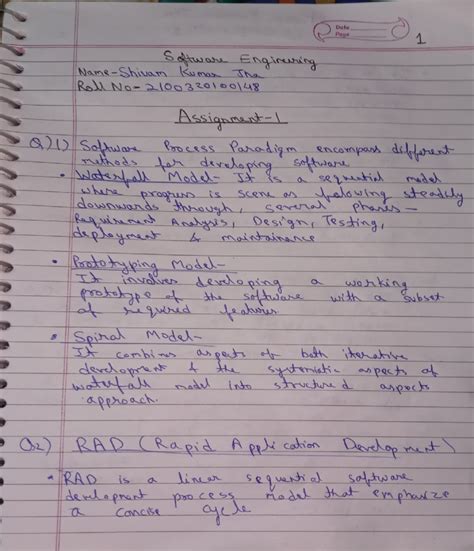 Date
Page
1
Software Engineering
Name-Shivam Kumar Jha
Roll No-2100320100148
Assignment-1
Q)1) Software Process Paradigm encompass different
methods for developing software
• Waterfall Model- It is a seqential model
where progress is scene as following steadily
downwards through, several Phases-
Requirement Analysis, Design, Testing,
deployment & maintainence
• Prototyping Model-
It involves developing a working
prototype of the software with a subset
of required features
• Spiral Model-
It combines aspects of both iterative
development & the systematic aspects of
waterfall model into structured aspects
approach.
Q2) RAD (Rapid Application Development)
• RAD is a linear sequential software
development process model that emphasize
a concise cycle